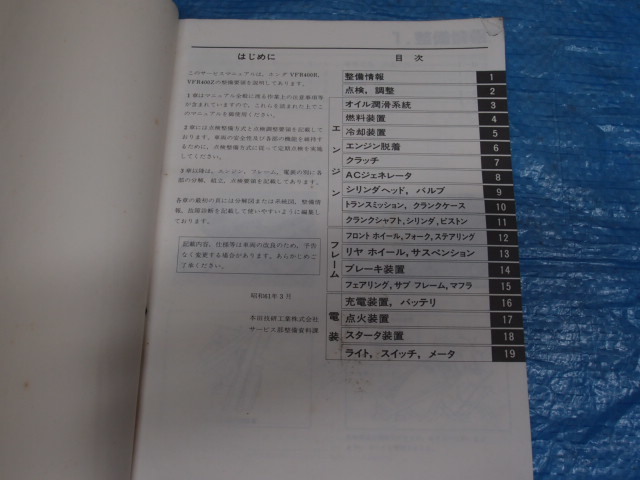 はじめに
このサービスマニュアルは、ホンダ VFR400R、
VFR400Zの整備要領を説明してあります。
1章はマニュアル全般に渡る作業上の注意事項等
が含まれていますので、これらを読まれた上でこ
のマニュアルを御使用ください。
2章には点検整備方式と点検調整要領を記載して
おります。車両の安全性及び各部の機能を維持す
るために、点検整備方式に従って定期点検を実施
してください。
3章以降は、エンジン、フレーム、電装の別に各
部の分解、組立、点検要領を記載してあります。
各章の最初の頁には分解図または系統図、整備情
報、故障診断を記載して使いやすいように編集し
ております。
記載内容、仕様等は車両の改良のため、予告
なく変更する場合があります。あらかじめご
了承ください。
昭和61年3月
本田技研工業株式会社
サービス部整備資料課
目次
整備情報 1
点検，調整 2
エンジン
オイル潤滑系統 3
燃料装置 4
冷却装置 5
エンジン脱着 6
クラッチ 7
ACジェネレータ 8
シリンダヘッド，バルブ 9
トランスミッション，クランクケース 10
クランクシャフト，シリンダ，ピストン 11
フレーム
フロント ホイール，フォーク，ステアリング 12
リヤ ホイール，サスペンション 13
ブレーキ装置 14
フェアリング，サブ フレーム，マフラ 15
電装
充電装置，バッテリ 16
点火装置 17
スタータ装置 18
ライト，スイッチ，メータ 19